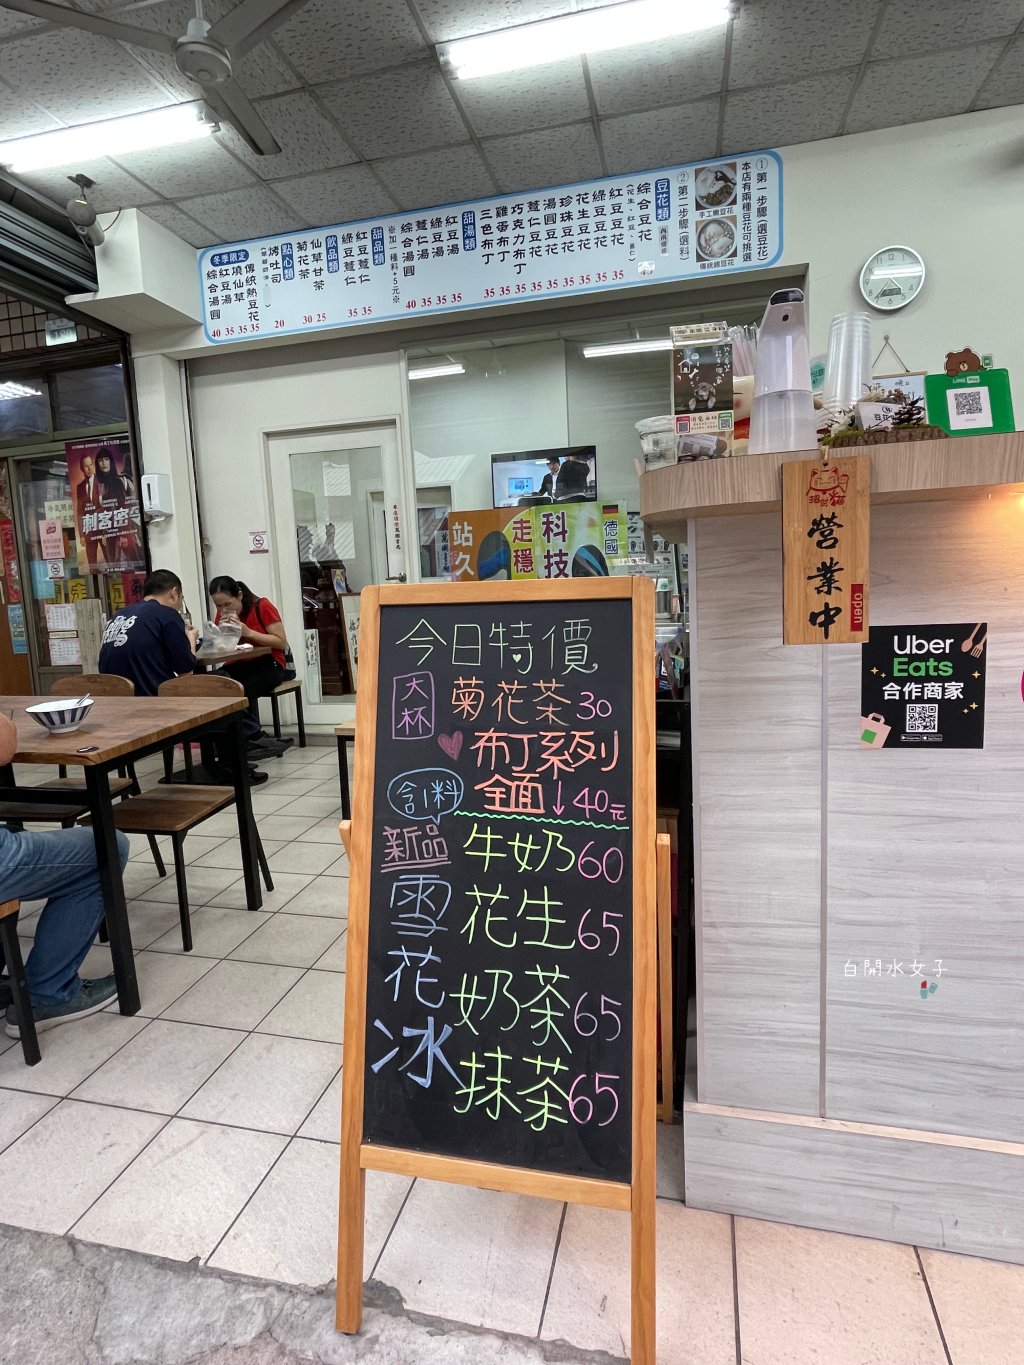 ①第一步驟(選豆花)
本店有兩種豆花可挑選
手工嫩豆花
傳統綿豆花
②第二步驟(選料)
豆花類
綜合豆花
(花生、紅豆、薏仁)
紅豆豆花 35
綠豆豆花 35
花生豆花 35
珍珠豆花 35
湯圓豆花 35
薏仁豆花 35
巧克力布丁 35
雞蛋布丁 35
三色布丁 35
甜湯類
紅豆湯 35
綠豆湯 35
薏仁湯 35
綜合湯圓 40
※加一種料+5元※
甜品類
紅豆薏仁 35
綠豆薏仁 35
飲品類
仙草甘茶 25
菊花茶 30
點心類
烤吐司 20
冬季限定
傳統熱豆花 35
燒仙草 35
紅豆湯 35
綜合湯圓 40
刺客密令
站久
走穩
科技
德國
招財貓
營業中
open
Uber
Eats
合作商家
今日特價
大杯 菊花茶30
布丁系列
全面↓40元
含1料
新品
雪花冰
牛奶60
花生65
奶茶65
抹茶65
白開水女子